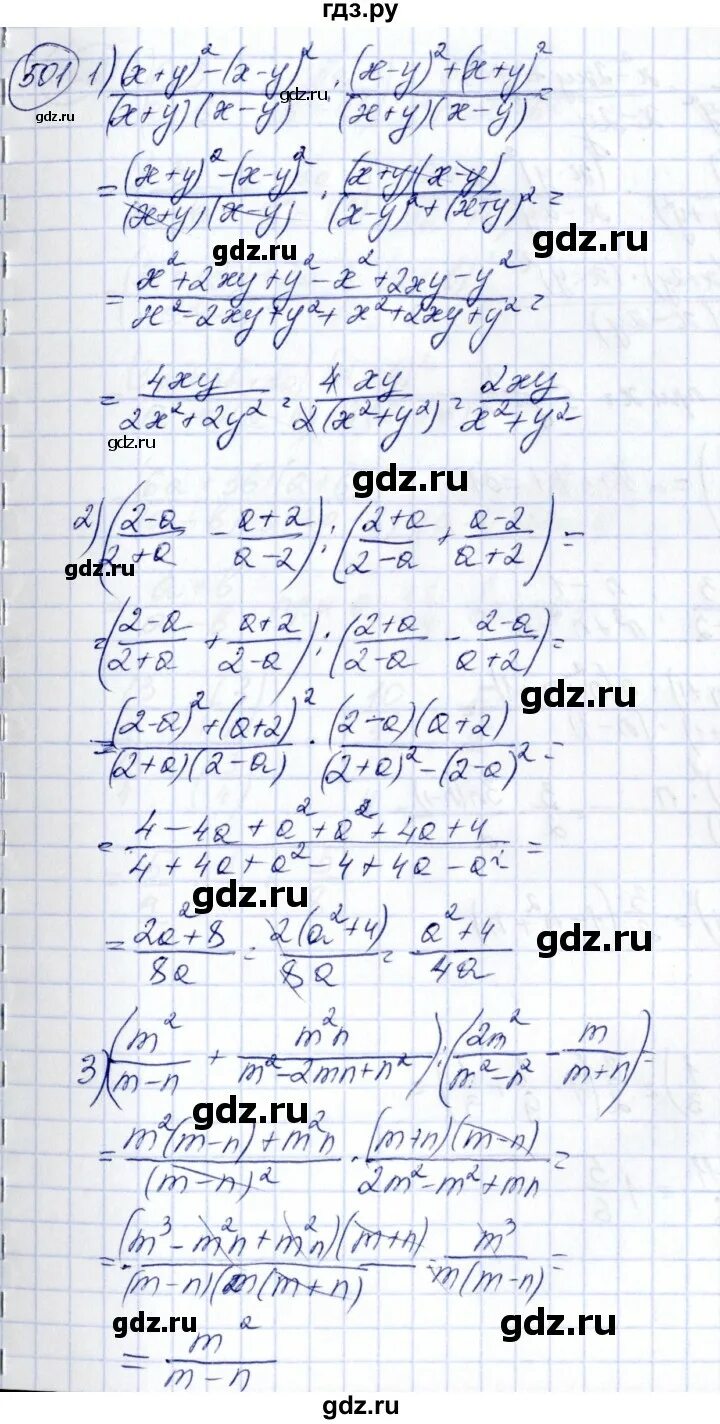 гдз.ру
501 1) ((x+y)²-(x-y)²)/((x+y)(x-y)) : ((x-y)²+(x+y)²)/((x+y)(x-y)) =
gdz.ru gdz.ru
gdz.ru
= ((x+y)²-(x-y)²)/((x+y)(x-y)) · ((x+y)(x-y))/((x-y)²+(x+y)²) =
gdz.ru gdz.ru
= (x²+2xy+y²-x²+2xy-y²)/(x²-2xy+y²+x²+2xy+y²) =
= 4xy/(2x²+2y²) = 4xy/(2(x²+y²)) = 2xy/(x²+y²)
gdz.ru
gdz.ru
2) ((2-a)/(2+a) - (a+2)/(a-2)) : ((2+a)/(2-a) + (a-2)/(a+2)) =
gdz.ru
= ((2-a)/(2+a) + (a+2)/(2-a)) : ((2+a)/(2-a) - (2-a)/(a+2)) =
gdz.ru
= ((2-a)²+(a+2)²)/((2+a)(2-a)) · ((2-a)(a+2))/((2+a)²-(2-a)²) =
= (4-4a+a²+a²+4a+4)/(4+4a+a²-4+4a-a²) =
gdz.ru
= (2a²+8)/8a = 2(a²+4)/8a = (a²+4)/4a
gdz.ru
3) (m²/(m-n) + m²n/(m²-2mn+n²)) : (2m²/(m²-n²) - m/(m+n)) =
gdz.ru
= (m²(m-n)+m²n)/(m-n)² · ((m+n)(m-n))/(2m²-m²+mn) =
= ((m³-m²n+m²n)(m+n))/((m-n)(m(m+n)) = m³/(m(m-n)) =
gdz.ru gdz.ru
= m²/(m-n)
gdz.ru